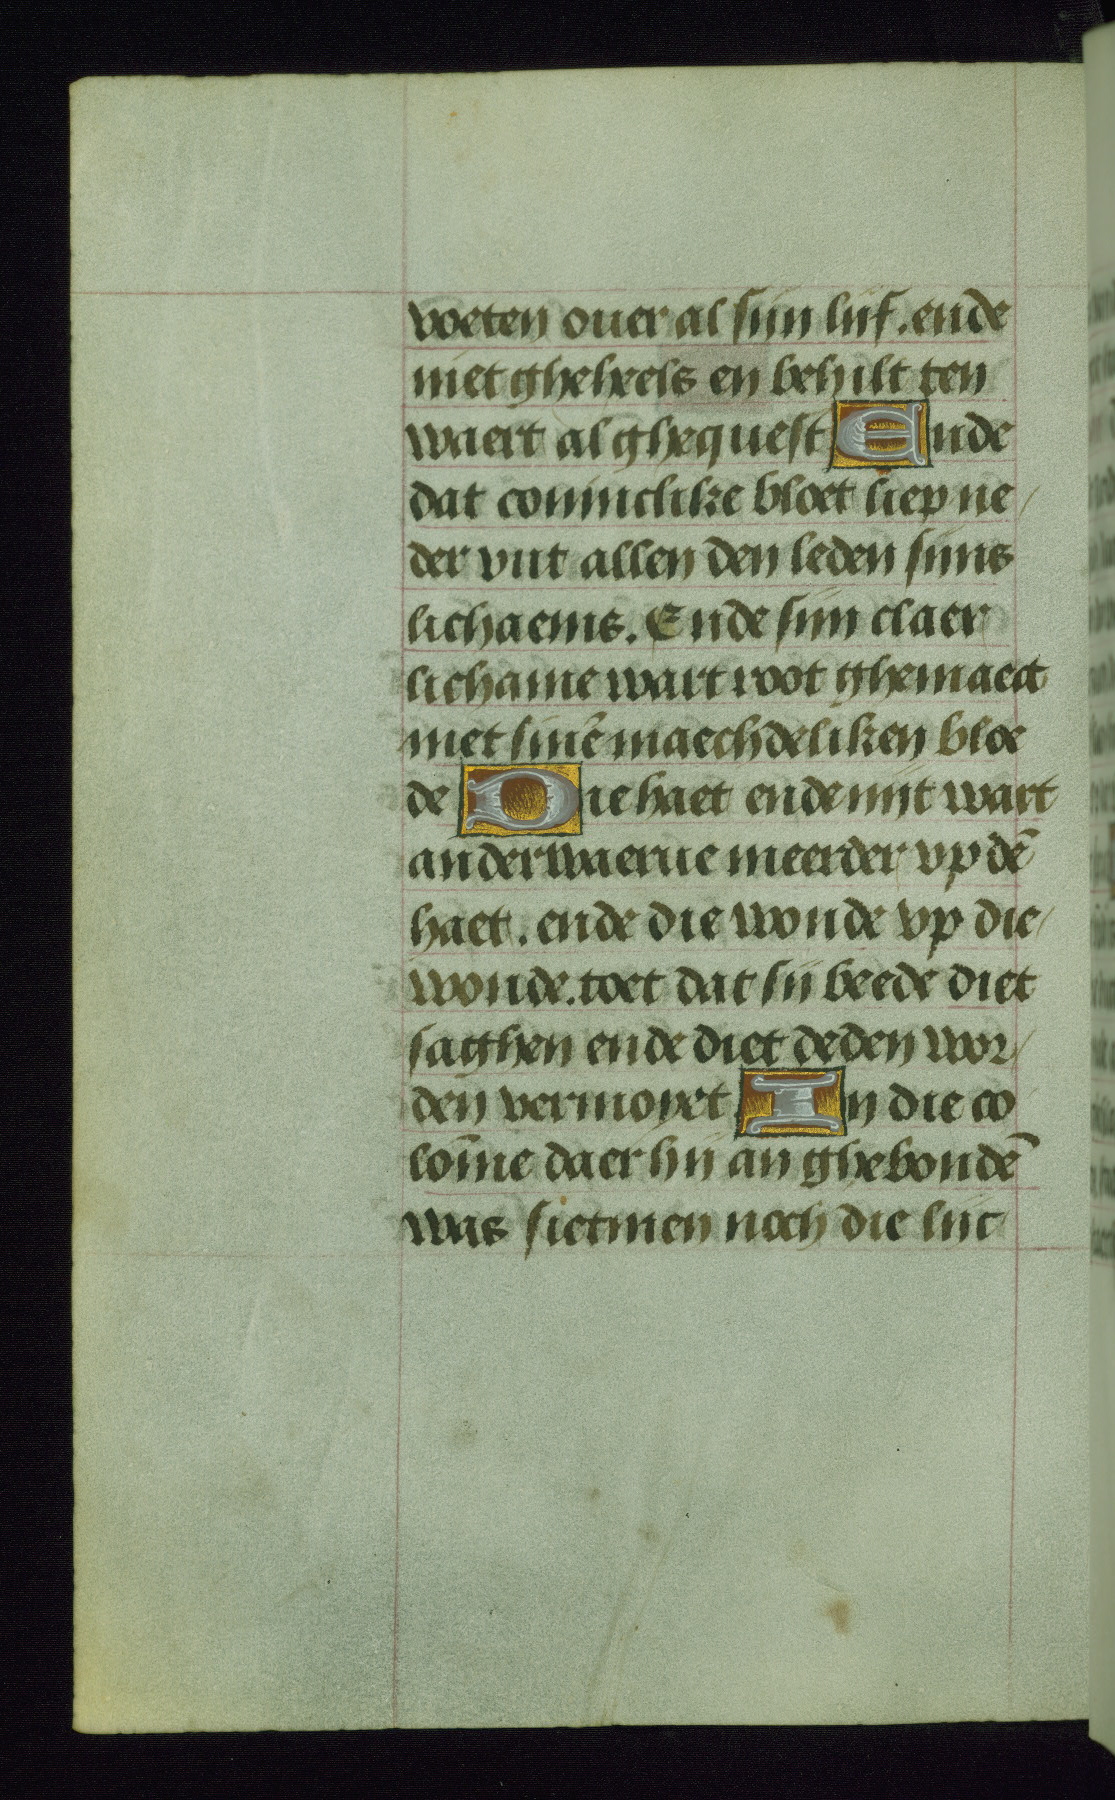 voeten ouer al sijn lijf. ende
niet gheheels en behilt ten
waert al ghequest Ende
dat coninclike bloet liep ne
der vut allen den leden sijns
lichaems. Ende sijn claer
lichame wart root ghemaect
met sinē maechdeliken bloe
de Die haet ende nijt wart
anderwaerue meerder vp dē
haet. ende die wonde vp die
wonde. toet dat sij beede diet
saghen ende diet deden wor
den vermoyet In die co
lōme daer hij an ghebondē
was sietmen noch die lijc